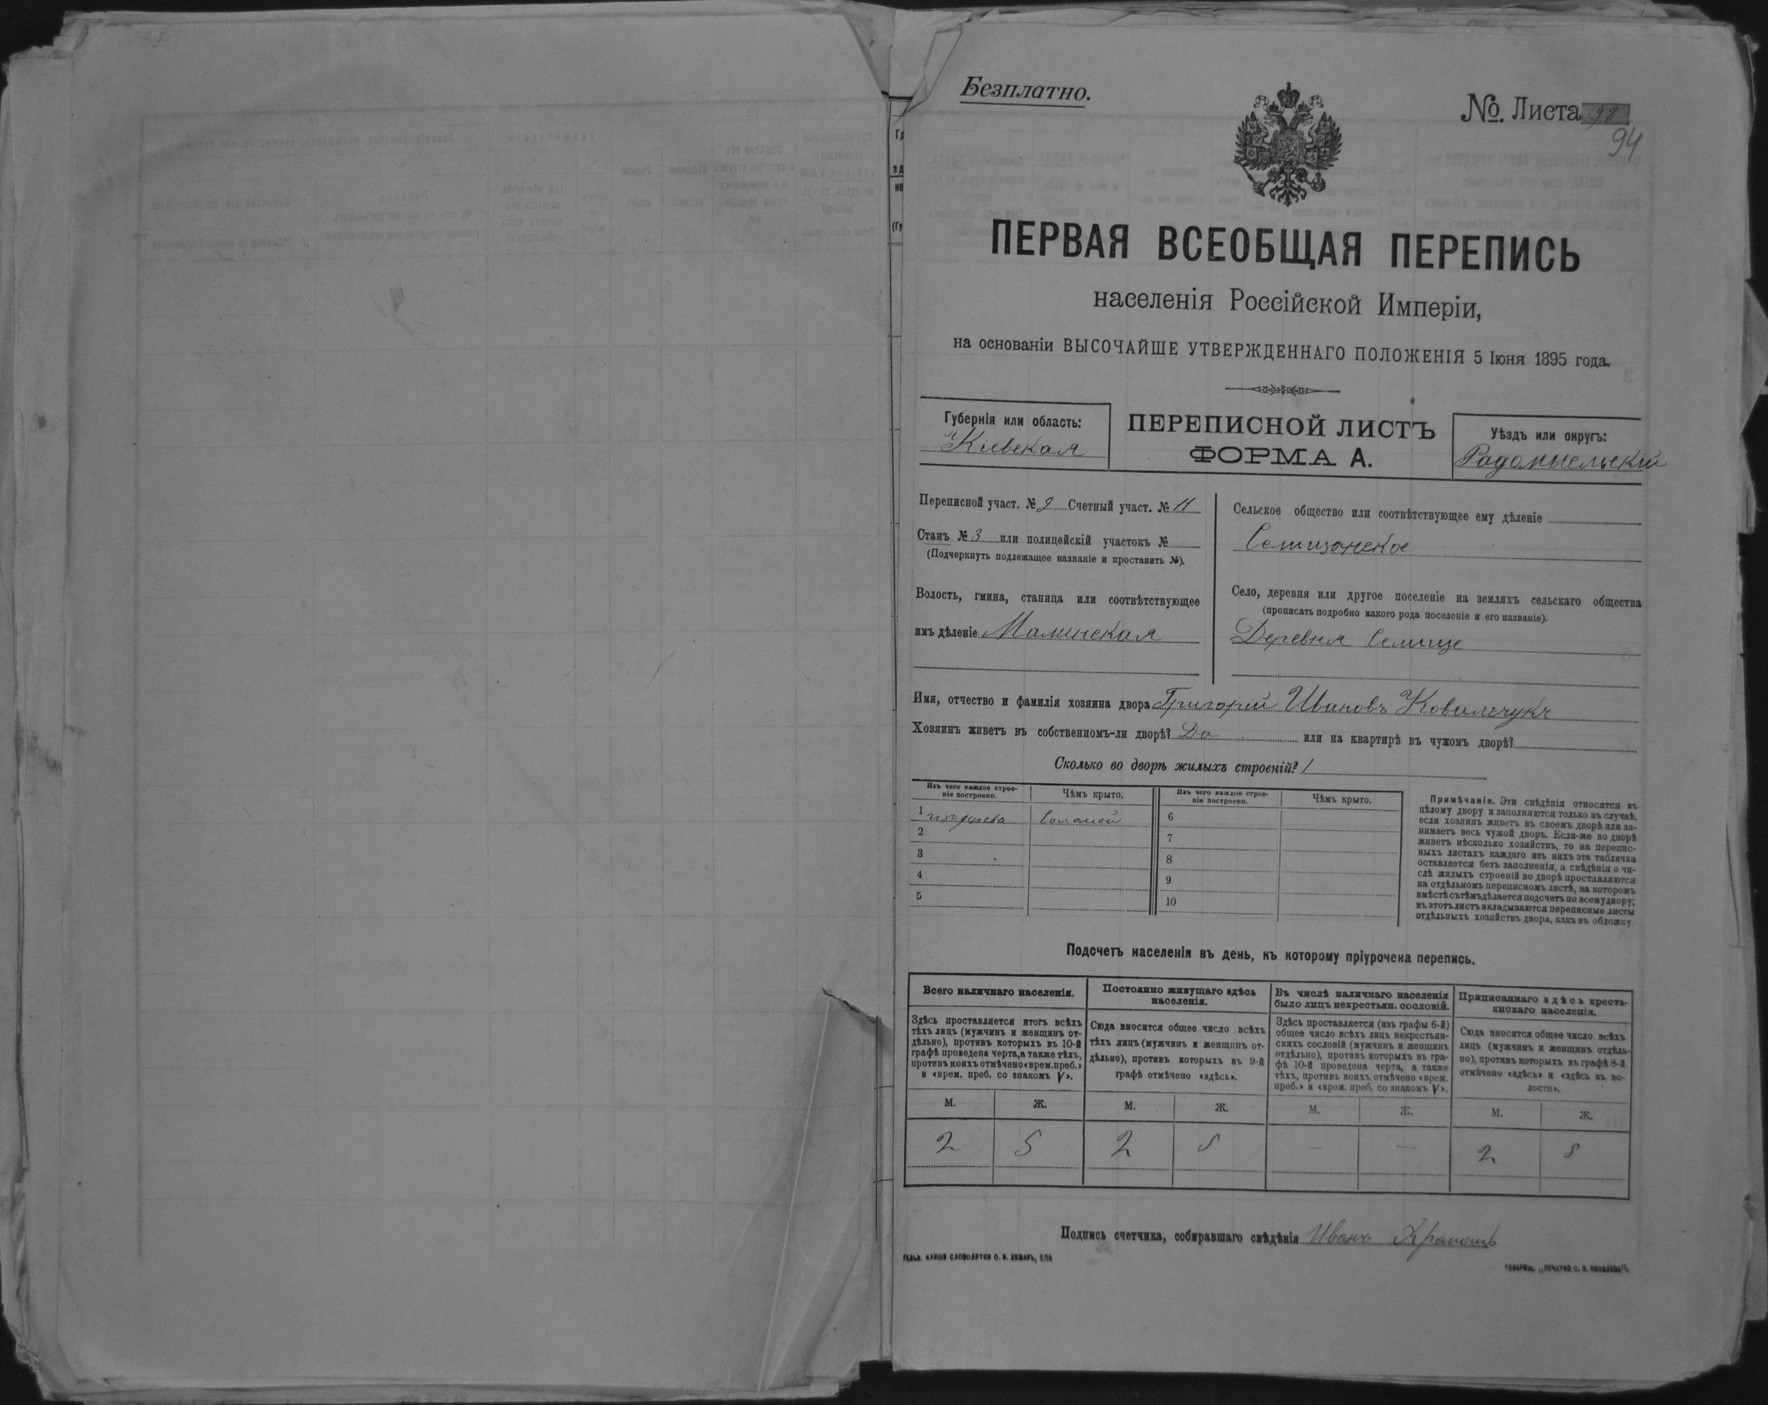 Безплатно.
№. Листа
94
ПЕРВАЯ ВСЕОБЩАЯ ПЕРЕПИСЬ
населенія Россійской Имперіи,
на основаніи ВЫСОЧАЙШЕ УТВЕРЖДЕННАГО ПОЛОЖЕНІЯ 5 Іюня 1895 года.
Губернія или область:
Кіевская
ПЕРЕПИСНОЙ ЛИСТЪ
ФОРМА А.
Уѣздъ или округъ:
Радомысльскій
Переписной участ. № 2 Счетный участ. № 11
Станъ № 3 или полицейскій участокъ №
(Подчеркнуть подлежащее названіе и проставить №).
Волость, гмина, станица или соотвѣтствующее
имъ дѣленіе Малинская
Сельское общество или соотвѣтствующее ему дѣленіе
Селищанское
Село, деревня или другое поселеніе на земляхъ сельскаго общества
(прописать подробно какого рода поселеніе и его названіе).
Деревня Селище
Имя, отчество и фамилія хозяина двора Григорій Ивановъ Ковальчукъ
Хозяинъ живетъ въ собственномъ-ли дворѣ? Да или на квартирѣ въ чужомъ дворѣ?
Сколько во дворѣ жилыхъ строеній? 1
Изъ чего каждое строе-
ніе построено.
Чѣмъ крыто.
Изъ чего каждое строе-
ніе построено.
Чѣмъ крыто.
1 изъ дерева Соломой 6
2 7
3 8
4 9
5 10
Примѣчаніе. Эти свѣдѣнія относятся къ
цѣлому двору и заполняются только въ случаѣ,
если хозяинъ живетъ въ своемъ дворѣ или за-
нимаетъ весь чужой дворъ. Если-же во дворѣ
живетъ нѣсколько хозяйствъ, то на перепис-
ныхъ листахъ каждаго изъ нихъ эта табличка
оставляется безъ заполненія, а свѣдѣнія о чи-
слѣ жилыхъ строеній во дворѣ проставляются
на отдѣльномъ переписномъ листѣ, на которомъ
вмѣстѣ съ тѣмъ дѣлается подсчетъ по всему двору;
въ этотъ листъ вкладываются переписные листы
отдѣльныхъ хозяйствъ двора, какъ въ обложку.
Подсчетъ населенія въ день, къ которому пріурочена перепись.
Всего наличнаго населенія.
Здѣсь проставляется итогъ всѣхъ
тѣхъ лицъ (мужчинъ и женщинъ от-
дѣльно), противъ которыхъ въ 10-й
графѣ проведена черта, а также тѣхъ,
противъ коихъ отмѣчено «врем. преб.»
и «врем. преб. со знакомъ V».
Постоянно живущаго здѣсь
населенія.
Сюда вносится общее число всѣхъ
тѣхъ лицъ (мужчинъ и женщинъ от-
дѣльно), противъ которыхъ въ 9-й
графѣ отмѣчено «здѣсь».
Въ числѣ наличнаго населенія
было лицъ некрестьян. сословій.
Здѣсь проставляется (изъ графы 6-й)
общее число всѣхъ лицъ некрестьян-
скихъ сословій (мужчинъ и женщинъ
отдѣльно), противъ которыхъ въ гра-
фѣ 10-й проведена черта, а также
тѣхъ, противъ коихъ отмѣчено «врем.
преб.» и «врем. преб. со знакомъ V».
Приписаннаго здѣсь кресть-
янскаго населенія.
Сюда вносится общее число всѣхъ
лицъ (мужчинъ и женщинъ отдѣль-
но), противъ которыхъ въ графѣ 8-й
отмѣчено «здѣсь» и «здѣсь къ во-
лости».
М. Ж. М. Ж. М. Ж. М. Ж.
2 5 2 5 — — 2 5
Подпись счетчика, собиравшаго свѣдѣнія Иванъ